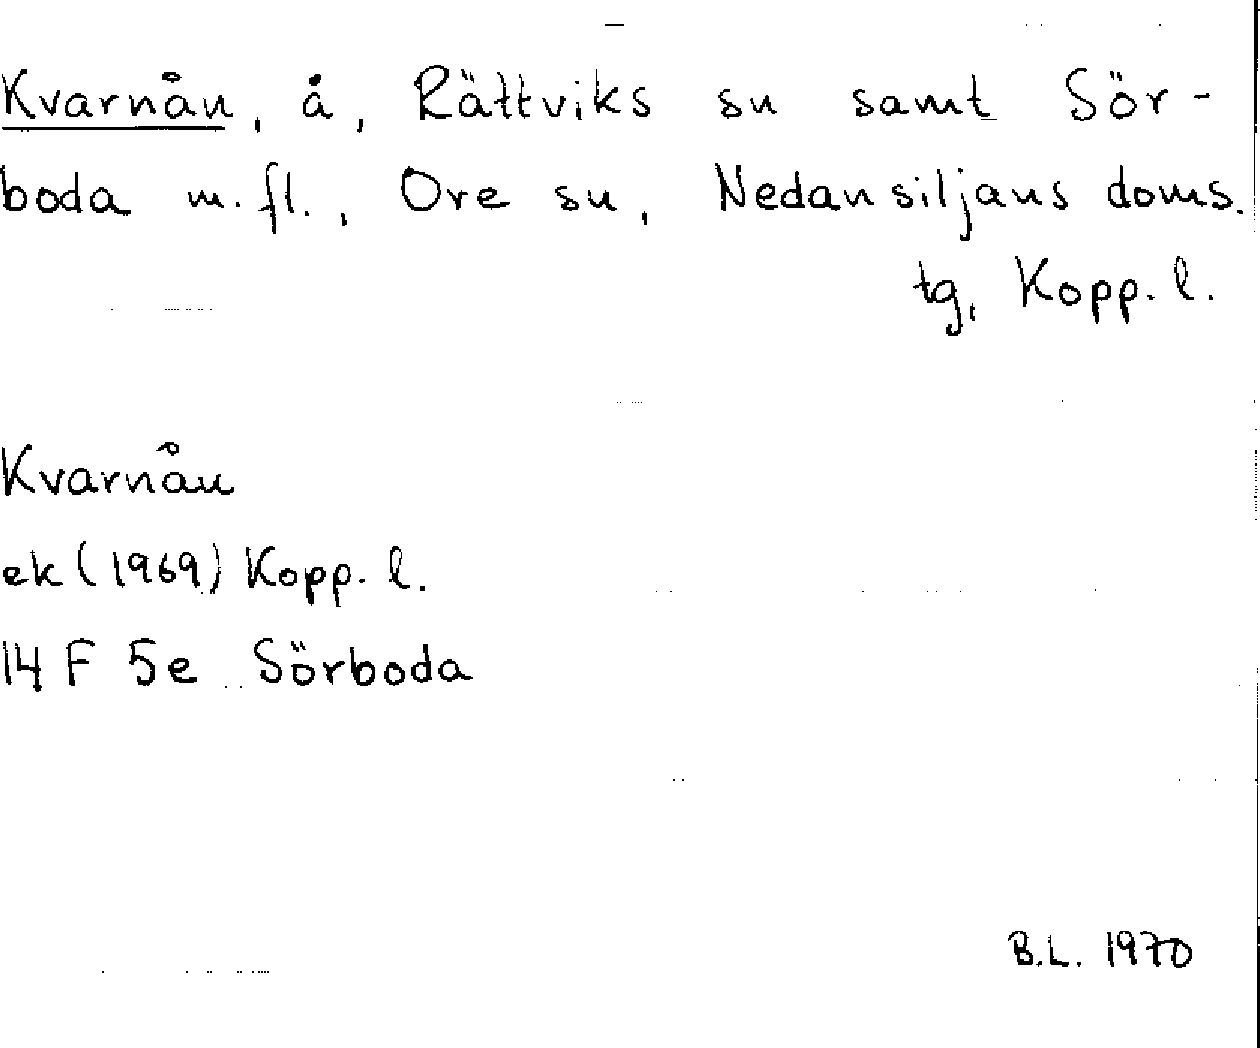 Kvarnån, å, Rättviks sn samt Sör-
boda m. fl., Ore sn, Nedansiljans doms.
tg, Kopp. l.
Kvarnån
ek (1969) Kopp. l.
14 F 5e Sörboda
B.L. 1970